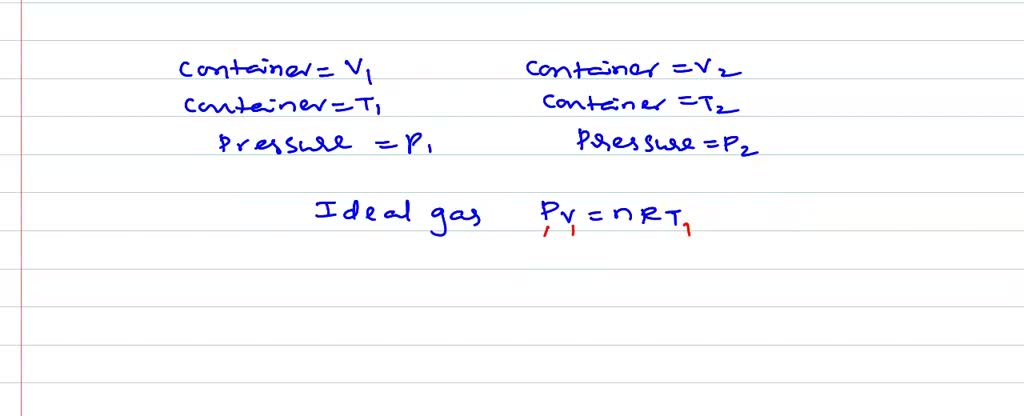 Container = V₁ Container = V₂
Container = T₁ Container = T₂
Pressure = P₁ Pressure = P₂
Ideal gas P₁V₁ = nRT₁